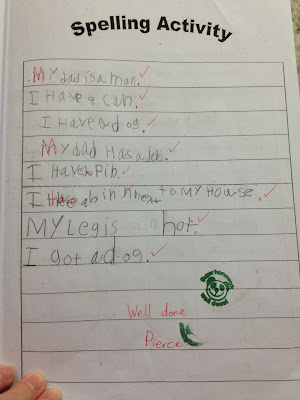 Spelling Activity
My dad is a man.
I Have a cab.
I Have a dog.
My dad Has a Job.
I Have a Pin.
I Have a bin next to My House.
My Leg is hot.
I got a dog.
Well done
Pierce